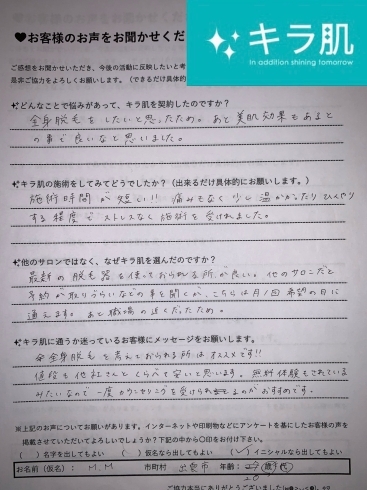 ♥お客様のお声をお聞かせくだ
キラ肌
In addition shining tomorrow
ご感想をお聞かせいただき、今後の活動に反映したいと考
是非ご協力をよろしくお願いします。（できるだけ具体的
どんなことで悩みがあって、キラ肌を契約したのですか？
全身脱毛をしたいと思ったため。あと美肌効果もあると
の事で良いなと思いました。
キラ肌の施術をしてみてどうでしたか？（出来るだけ具体的にお願いします。）
施術時間が短い!! 痛みもなく少し温かかったりひんやり
する程度でストレスなく施術を受けれました。
他のサロンではなく、なぜキラ肌を選んだのですか？
最新の脱毛器を使っておられる所が良い。他のサロンだと
予約が取りづらいなどの事を聞くが、こちらは月1回希望の日に
通えます。あと職場の近くだったため。
キラ肌に通うか迷っているお客様にメッセージをお願いします。
全身脱毛を考えておられる所はオススメです!!
値段も他社さんとくらべて安いと思います。無料体験もされている
みたいなので一度カウンセリングを受けられるのがおすすめです。
※上記のお声についてお願いがあります。インターネットや印刷物などにアンケートを基にしたお客様の声を
掲載させていただいてよろしいでしょうか？下記の中から〇印をお付け下さい。
（ ）名字を出してもよい （ ）仮名なら出してもよい （✓）イニシャルなら出してもよい
お名前（仮名）： M.M 市町村 出雲市 年齢： (歳)代
20
ご協力本当にありがとうございました